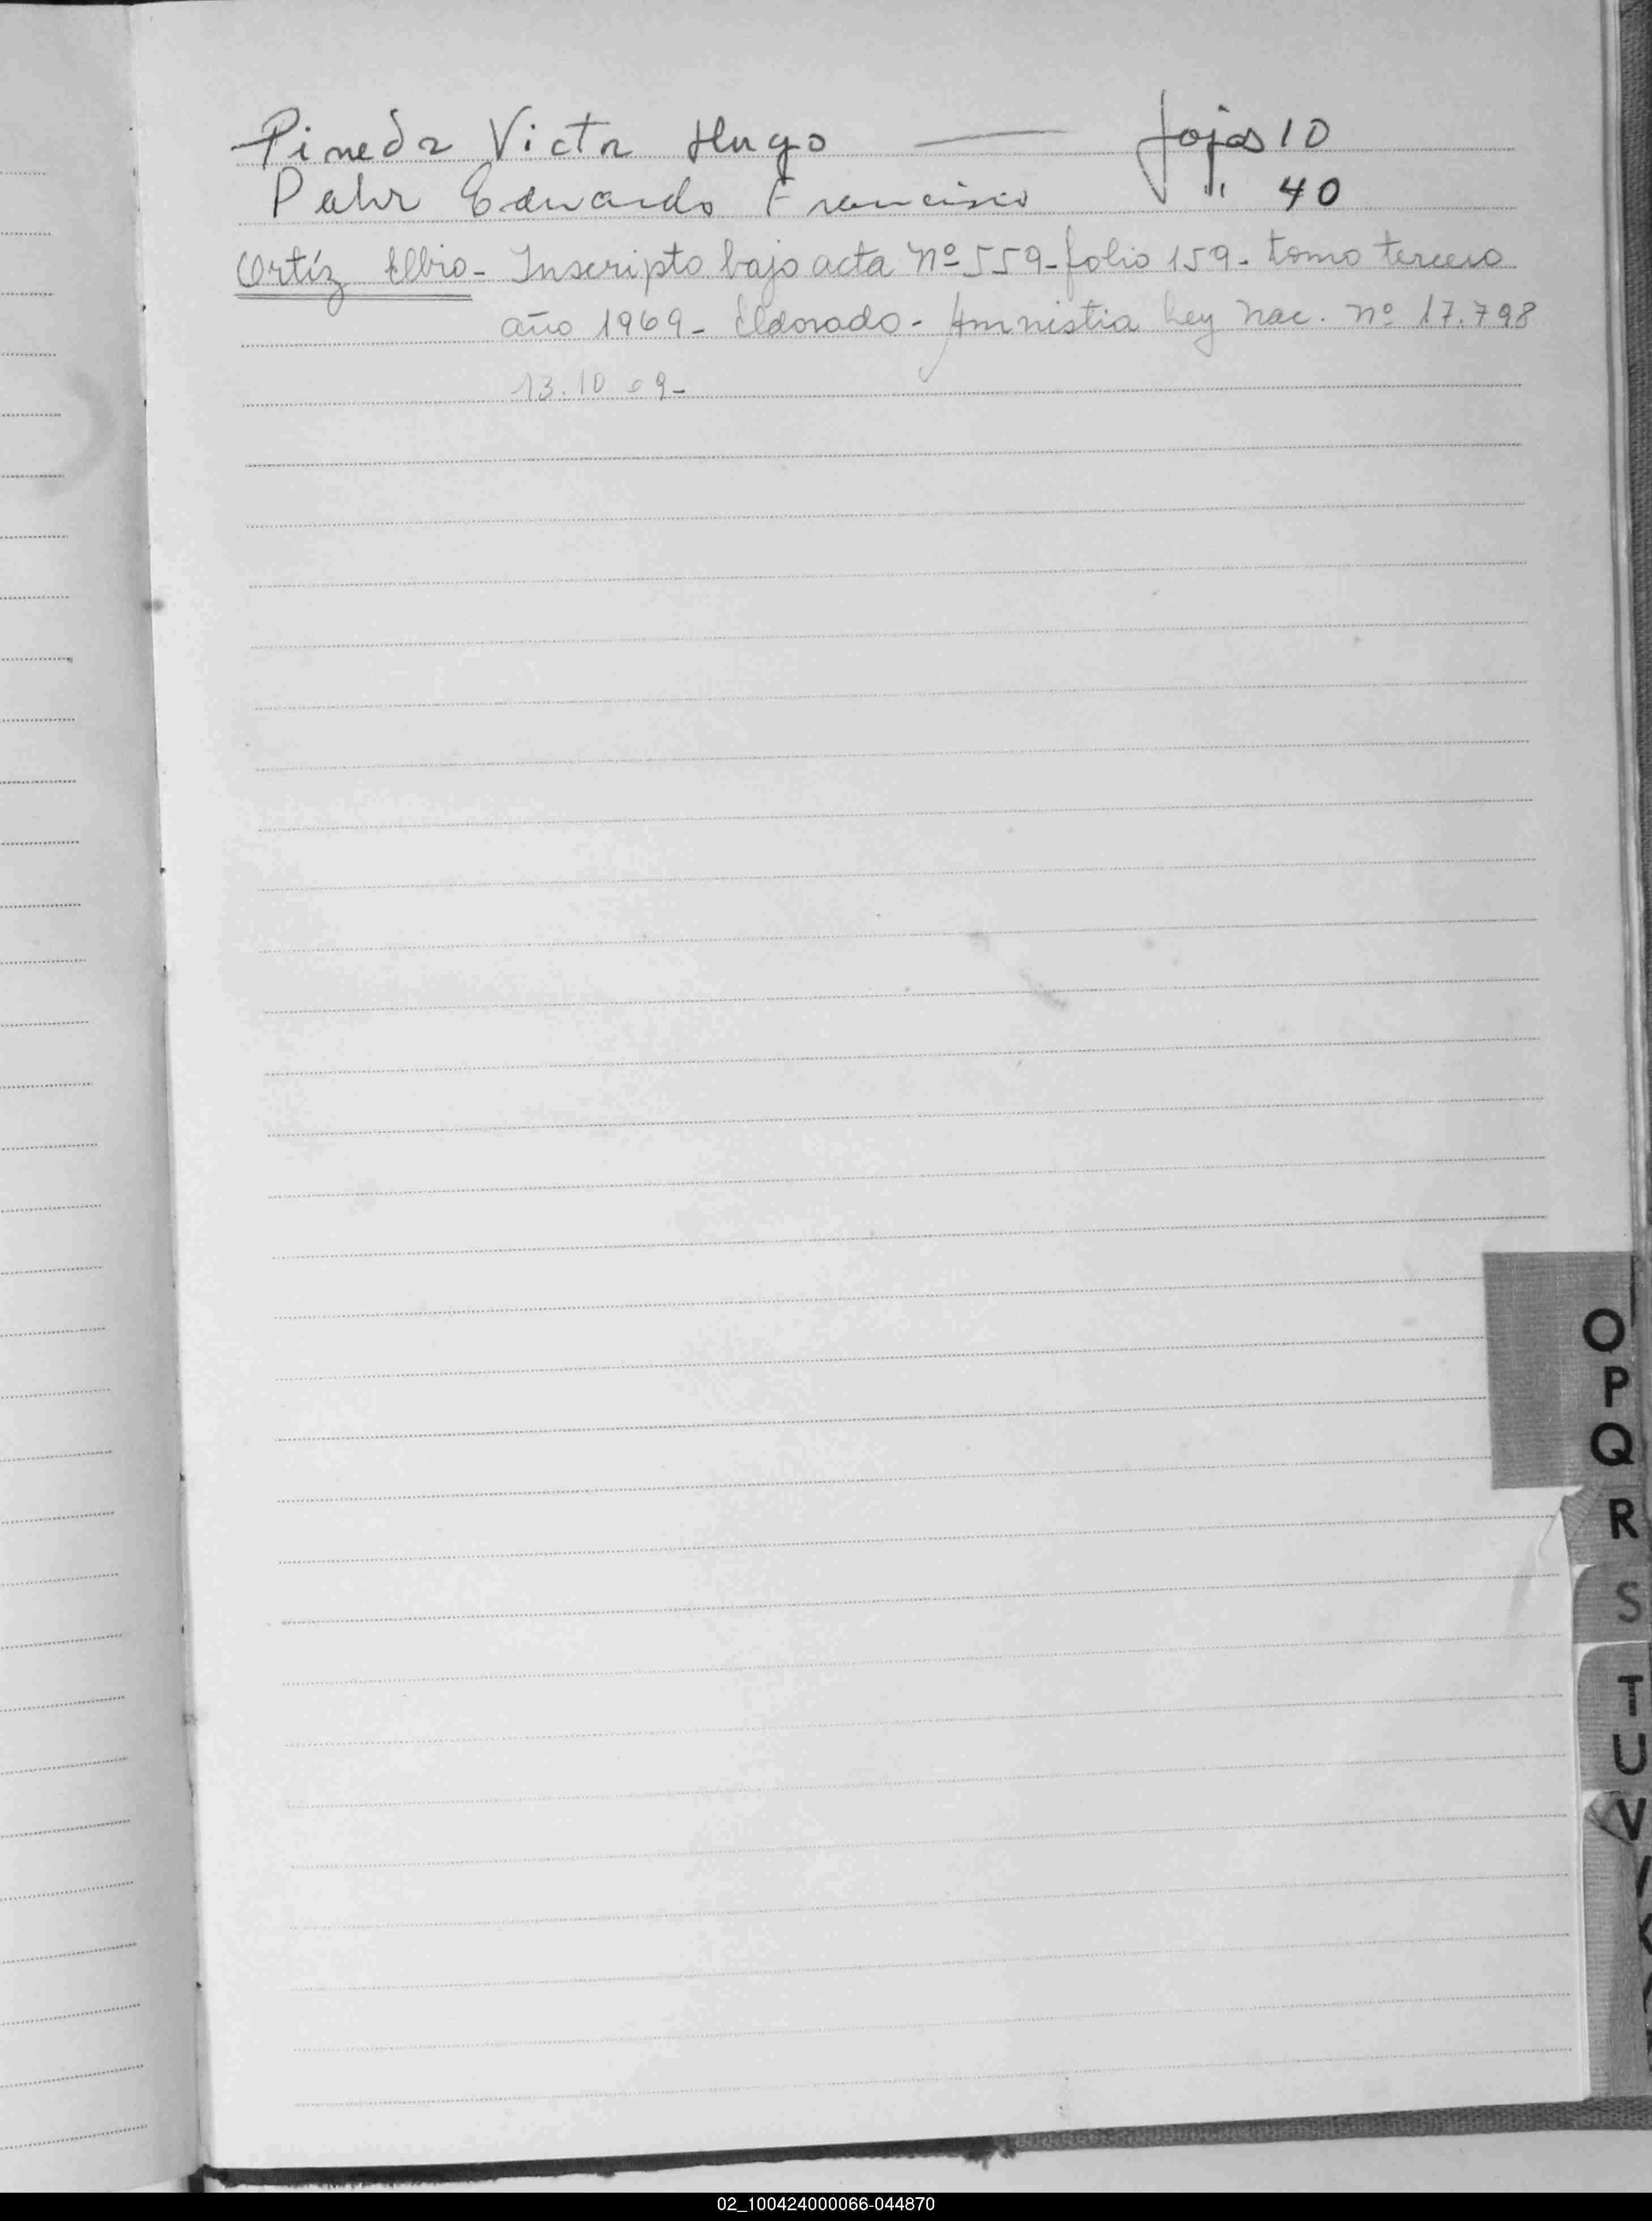 Pineda Victor Hugo — fojas 10
Pahr Eduardo Francisco " 40
Ortíz Elbio - Inscripto bajo acta nº 559 - folio 159 - tomo tercero
año 1969 - Eldorado - Amnistia Ley Nac. nº 17.798
13.10 69 -
O
P
Q
R
S
T
U
V
02_100424000066-044870